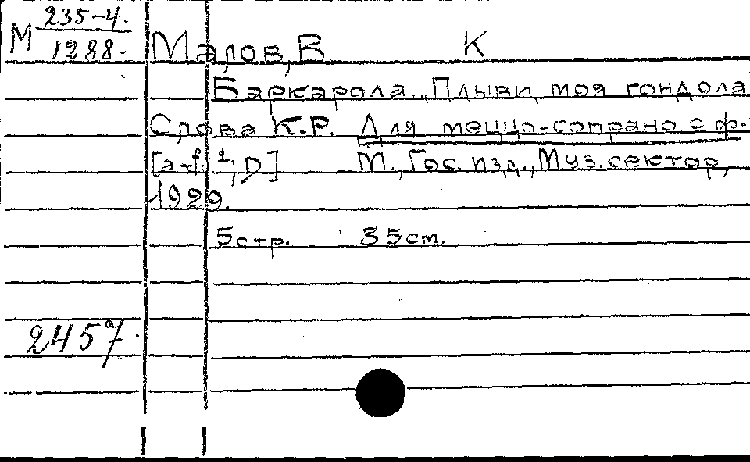 М 235-4.
1288.
Малов, В К
Баркарола. „Плыви, моя гондола
Слова К.Р. Для меццо-сопрано с ф-
[a-f¹, D] М., Гос. изд., Муз. сектор,
1929.
5 стр. 35 см.
2457.